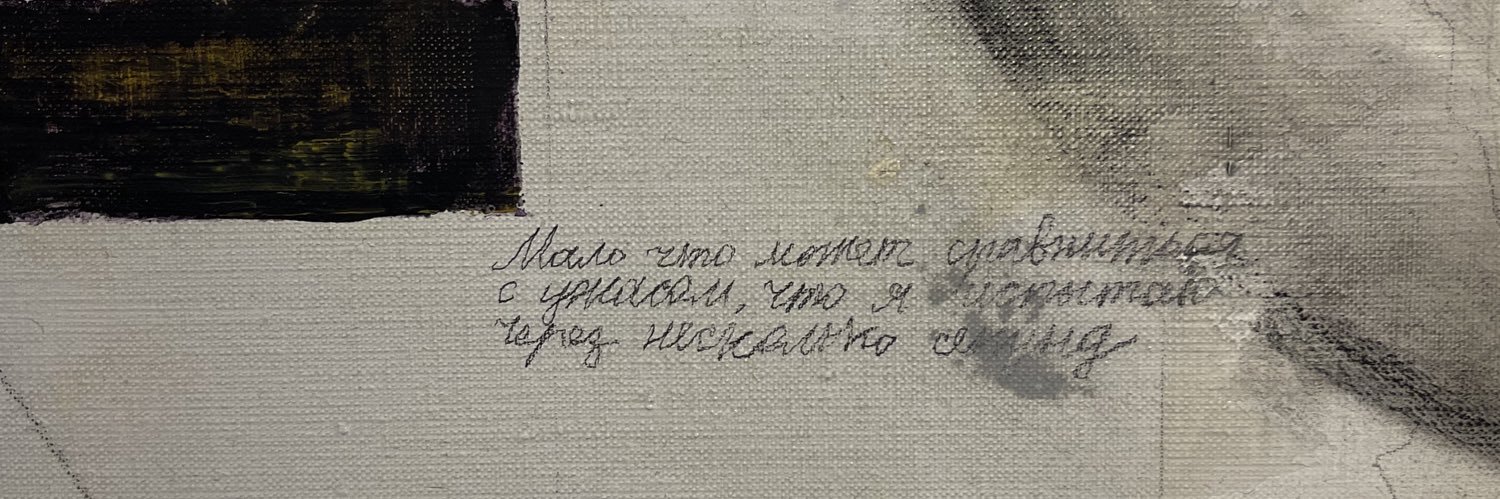 Мало что может сравниться
с ужасом, что я испытаю
через несколько секунд